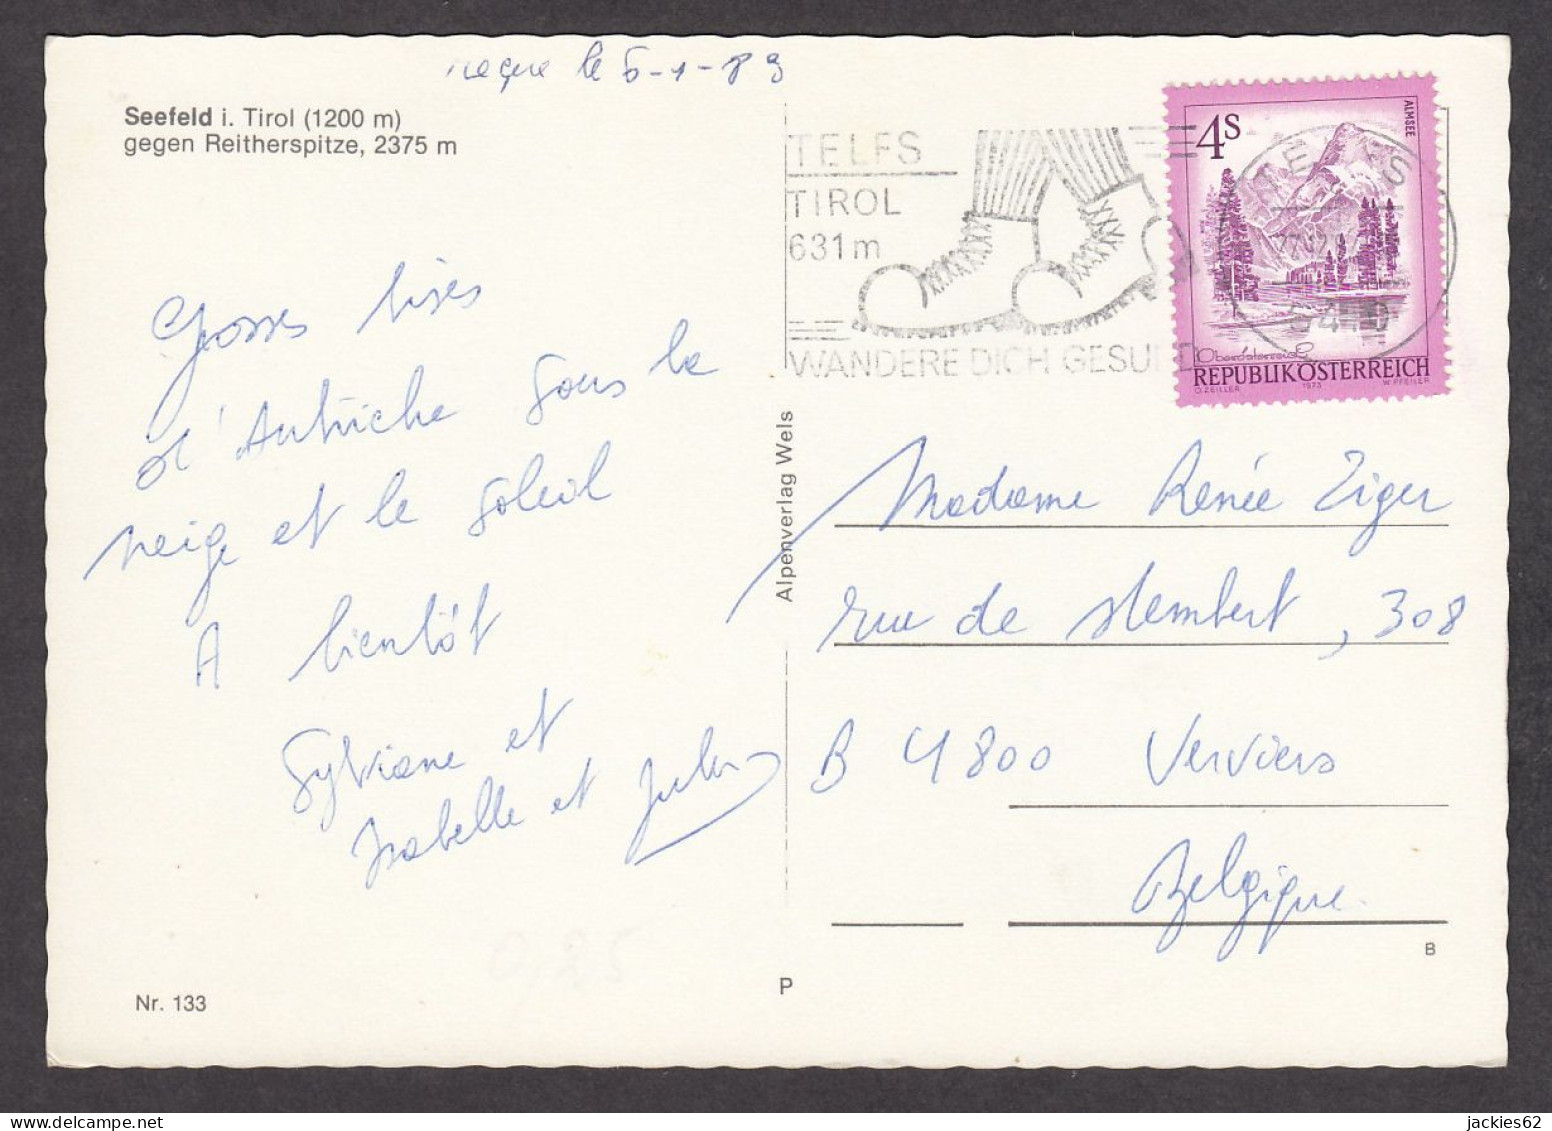 reçue le 6-1-83
Seefeld i. Tirol (1200 m)
gegen Reitherspitze, 2375 m
Grosses bises
d'Autriche sous la
neige et le soleil
A bientôt
Sylviane et
Isabelle et Jules
Nr. 133
Alpenverlag Wels
P
TELFS
TIROL
631 m
WANDERE DICH GESUND
TELFS
4S
ALMSEE
Oberösterreich
REPUBLIK ÖSTERREICH
O. ZEILLER 1973 W. PFEILER
Madame Renée Ziger
rue de Stembert, 308
B 4800 Verviers
Belgique.
B
jackies62